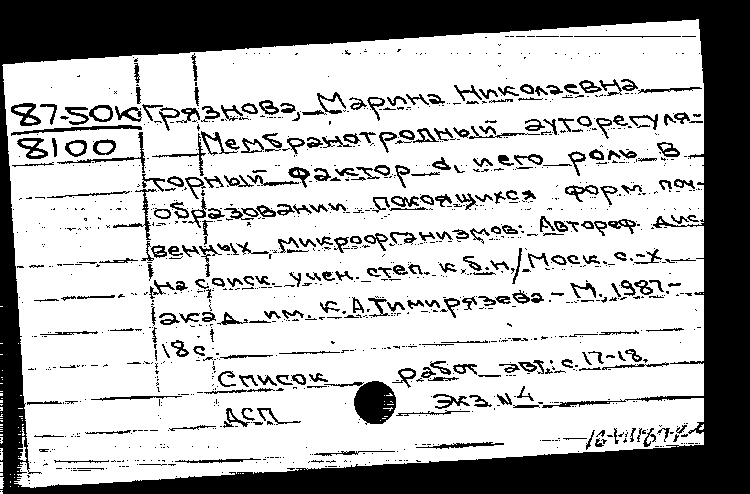 87-50к Грязнова, Марина Николаевна
8100 Мембранотропный ауторегуля-
торный фактор d, и его роль в
образовании покоящихся форм поч-
венных микроорганизмов: Автореф. дис.
на соиск. учен. степ. к.б.н./Моск. с.-х.
акад. им. К.А.Тимирязева. - М. 1987.-
18 с.
Список работ авт.: с. 17-18.
ДСП Экз. N 4.